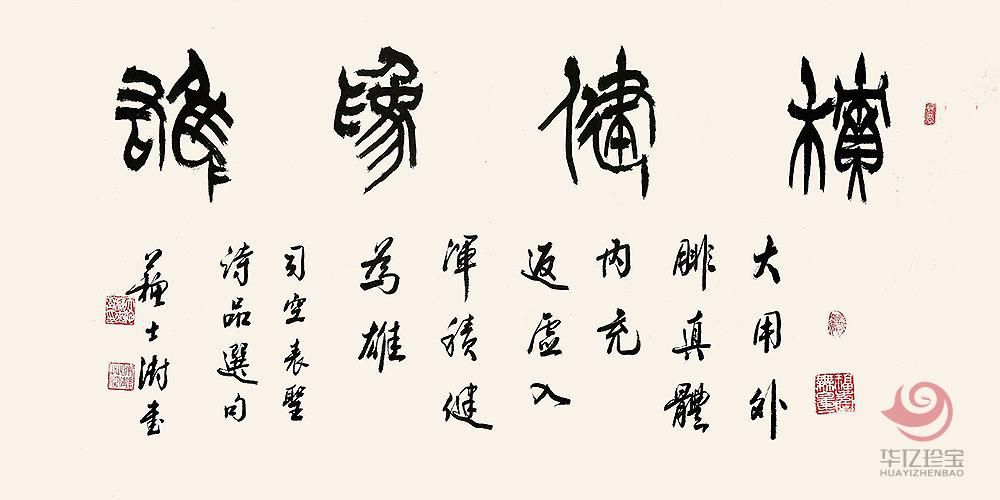 積健為雄
大用外
腓真體
内充
返虛入
渾積健
為雄
司空表聖
詩品選句
蘇士澍書
华亿珍宝
HUAYIZHENBAO